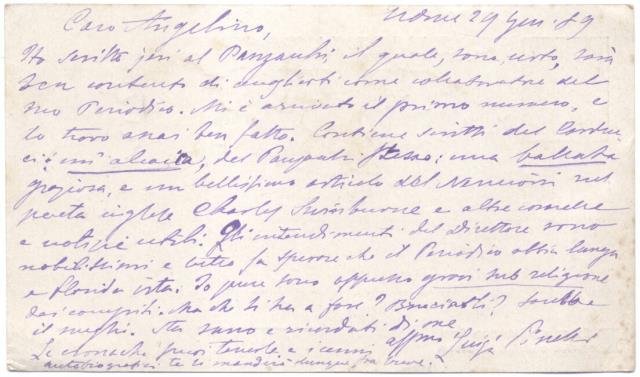 Udine 29 Gen. 89
Caro Angelino,
Ho scritto jeri al Panzacchi, il quale, sono certo, sarà
ben contento di accoglierti come collaboratore del
suo Periodico. Mi è arrivato il primo numero, e
lo trovo assai ben fatto. Contiene scritti del Carduc
ci: un' alcaica, del Panzacchi stesso: una ballata
graziosa, e un bellissimo articolo del Nencioni sul
poeta inglese Charles Swinburne e altre cosette
e notizie utili. Gli intendimenti del Direttore sono
nobilissimi e vitro fa sperare che il Periodico abbia lunga
e florida vita. Io pure sono oppresso
dai compiti. Ma che ti ha a fare? Bruciarli? Sarebbe
il meglio. Sta sano e ricordati di me
affmo Luigi Pinelli
Le cronache puoi tenerle e i cenni
autobiografici te li manderò dunque fra breve.